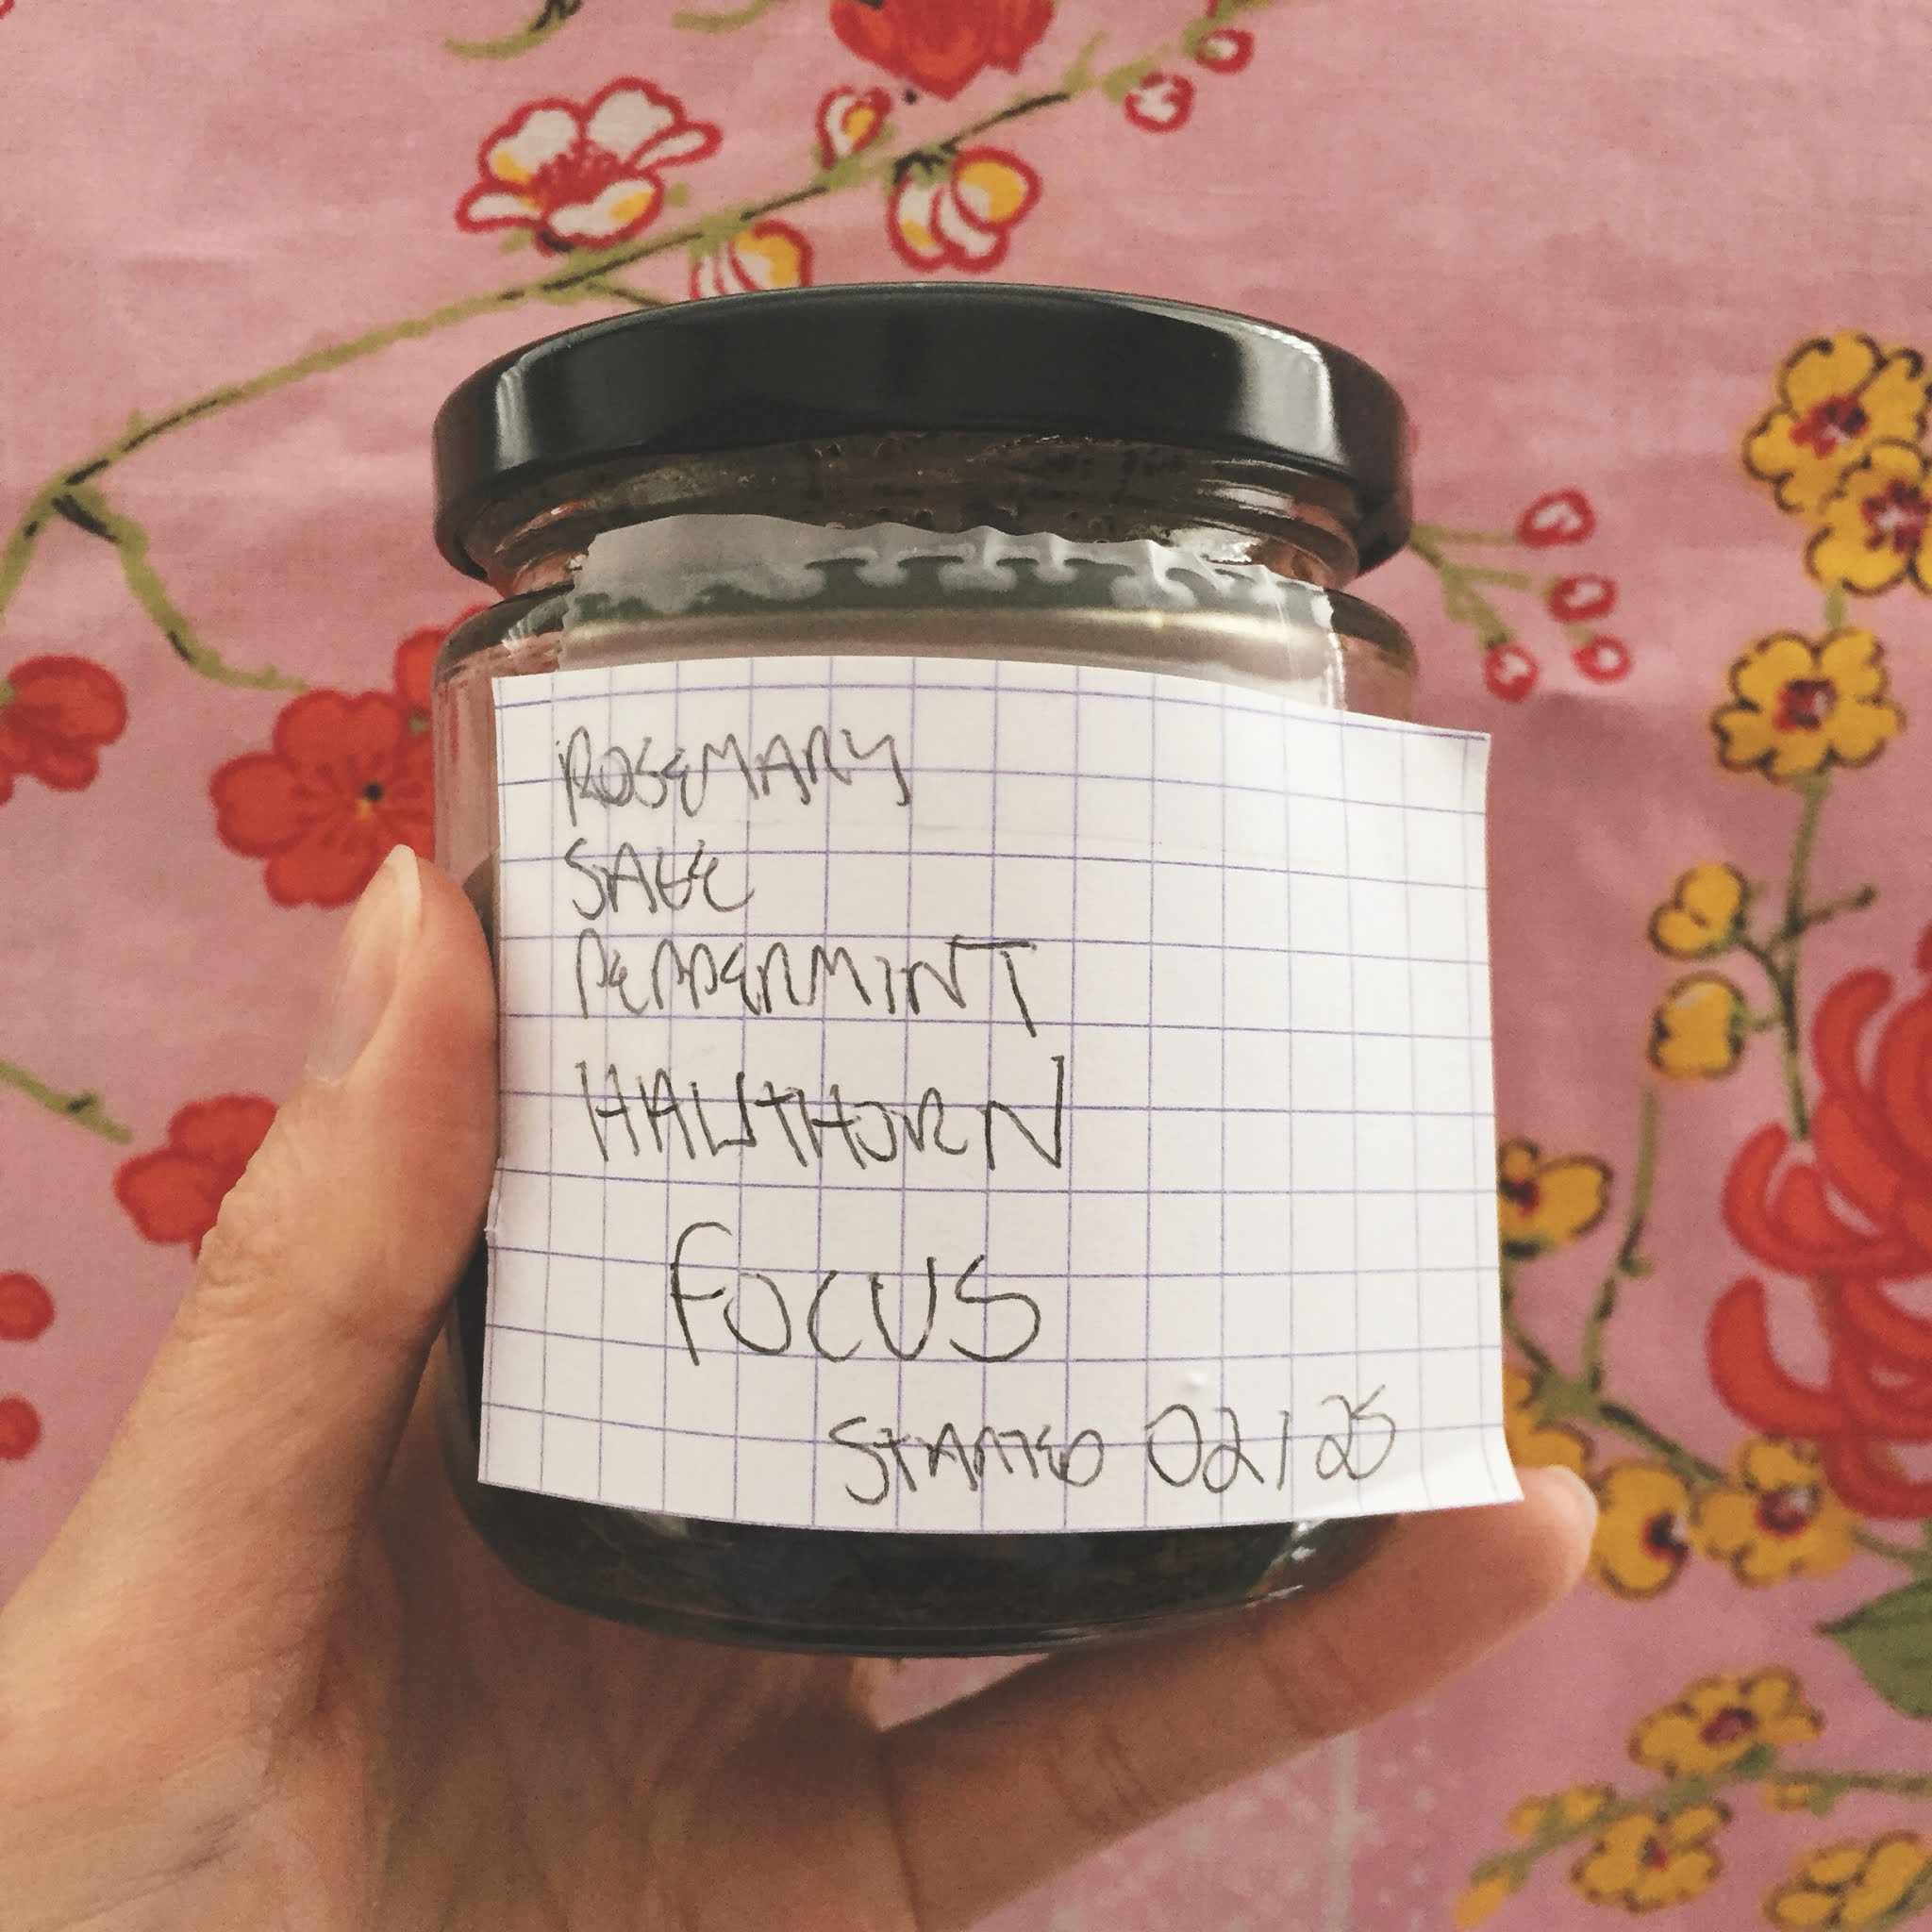 ROSEMARY
SAGE
PEPPERMINT
HAWTHORN
FOCUS
STARTED 02/25